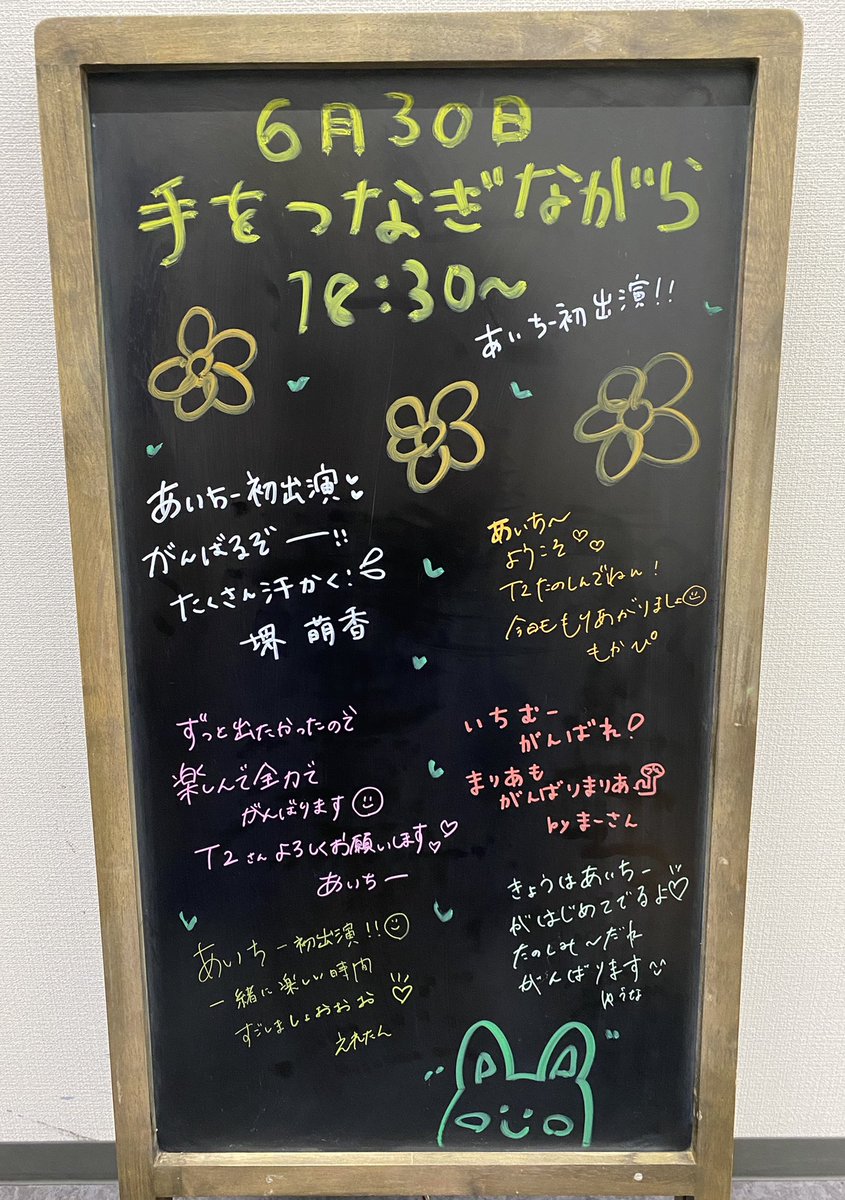 6月30日
手をつなぎながら
18:30〜
あいちー初出演!!
あいちー初出演
がんばるぞー!!
たくさん汗かく!
堺 萌香
あいち〜
ようこそ
T2たのしんでねん!
今日ももりあがりましょ
もかぴ
ずっと出たかったので
楽しんで全力で
がんばります
T2さんよろしくお願いします
あいちー
いちむー
がんばれ!
まりあも
がんばりまりあ
by まーさん
あいちー初出演!!
一緒に楽しい時間
すごしましょおおお
えれたん
きょうはあいちー
がはじめてでるよ
たのしみ〜だね
がんばります
ゆうな